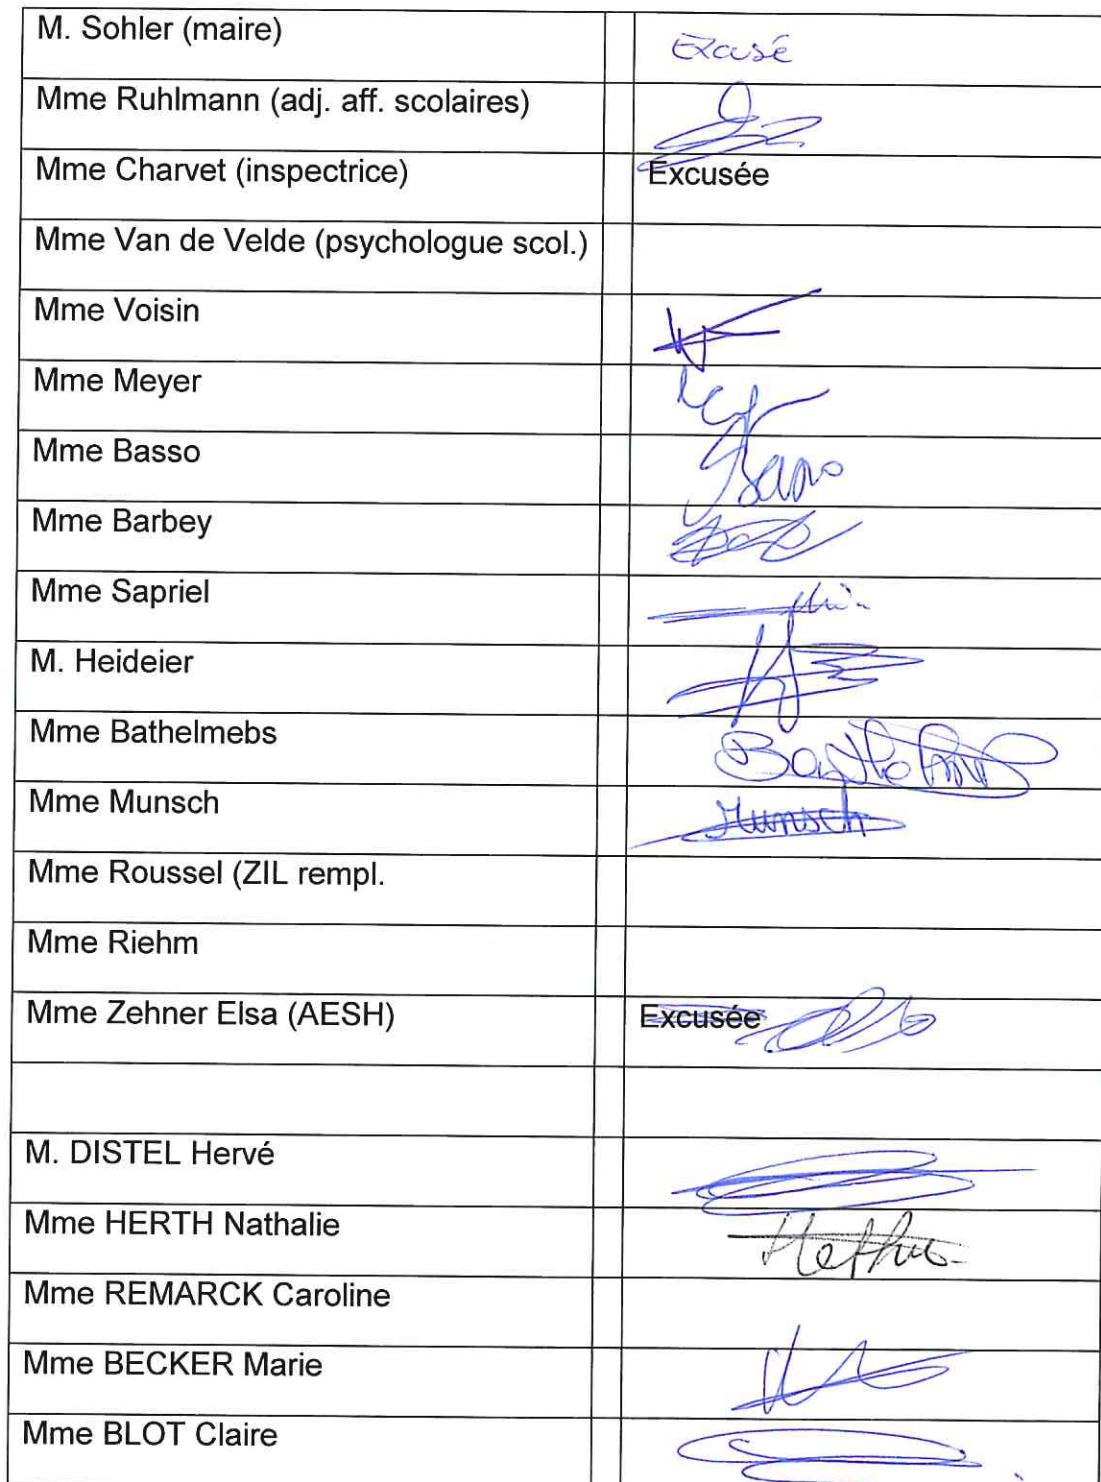 M. Sohler (maire) Excusé
Mme Ruhlmann (adj. aff. scolaires)
Mme Charvet (inspectrice) Excusée
Mme Van de Velde (psychologue scol.)
Mme Voisin
Mme Meyer
Mme Basso Basso
Mme Barbey
Mme Sapriel
M. Heideier
Mme Bathelmebs
Mme Munsch Munsch
Mme Roussel (ZIL rempl.
Mme Riehm
Mme Zehner Elsa (AESH) Excusée
M. DISTEL Hervé
Mme HERTH Nathalie
Mme REMARCK Caroline
Mme BECKER Marie
Mme BLOT Claire